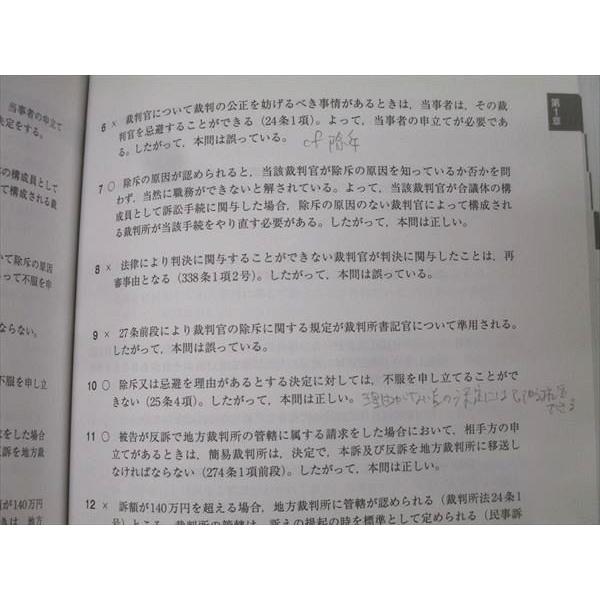 当事者の申立て
決定をする。
の構成員として
て構成される裁
いて除斥の原因
って不服を申
ならない。
不服を申し立
をした場合
訴を地方裁
が140万円
きは、地方
第1章
6 × 裁判官について裁判の公正を妨げるべき事情があるときは，当事者は，その裁
判官を忌避することができる（24条1項）。よって，当事者の申立てが必要であ
る。したがって，本問は誤っている。 cf 除斥
7 ○ 除斥の原因が認められると，当該裁判官が除斥の原因を知っているか否かを問
わず，当然に職務ができないと解されている。よって，当該裁判官が合議体の構
成員として訴訟手続に関与した場合，除斥の原因のない裁判官によって構成され
る裁判所が当該手続をやり直す必要がある。したがって，本問は正しい。
8 × 法律により判決に関与することができない裁判官が判決に関与したことは，再
審事由となる（338条1項2号）。したがって，本問は誤っている。
9 × 27条前段により裁判官の除斥に関する規定が裁判所書記官について準用される。
したがって，本問は誤っている。
10 ○ 除斥又は忌避を理由があるとする決定に対しては，不服を申し立てることがで
きない（25条4項）。したがって，本問は正しい。 理由がないとの決定には
できる
11 ○ 被告が反訴で地方裁判所の管轄に属する請求をした場合において，相手方の申
立てがあるときは，簡易裁判所は，決定で，本訴及び反訴を地方裁判所に移送し
なければならない（274条1項前段）。したがって，本問は正しい。
12 × 訴額が140万円を超える場合，地方裁判所に管轄が認められる（裁判所法24条1
号）ところ，裁判所の管轄は，訴えの提起の時を標準として定められる（民事訴